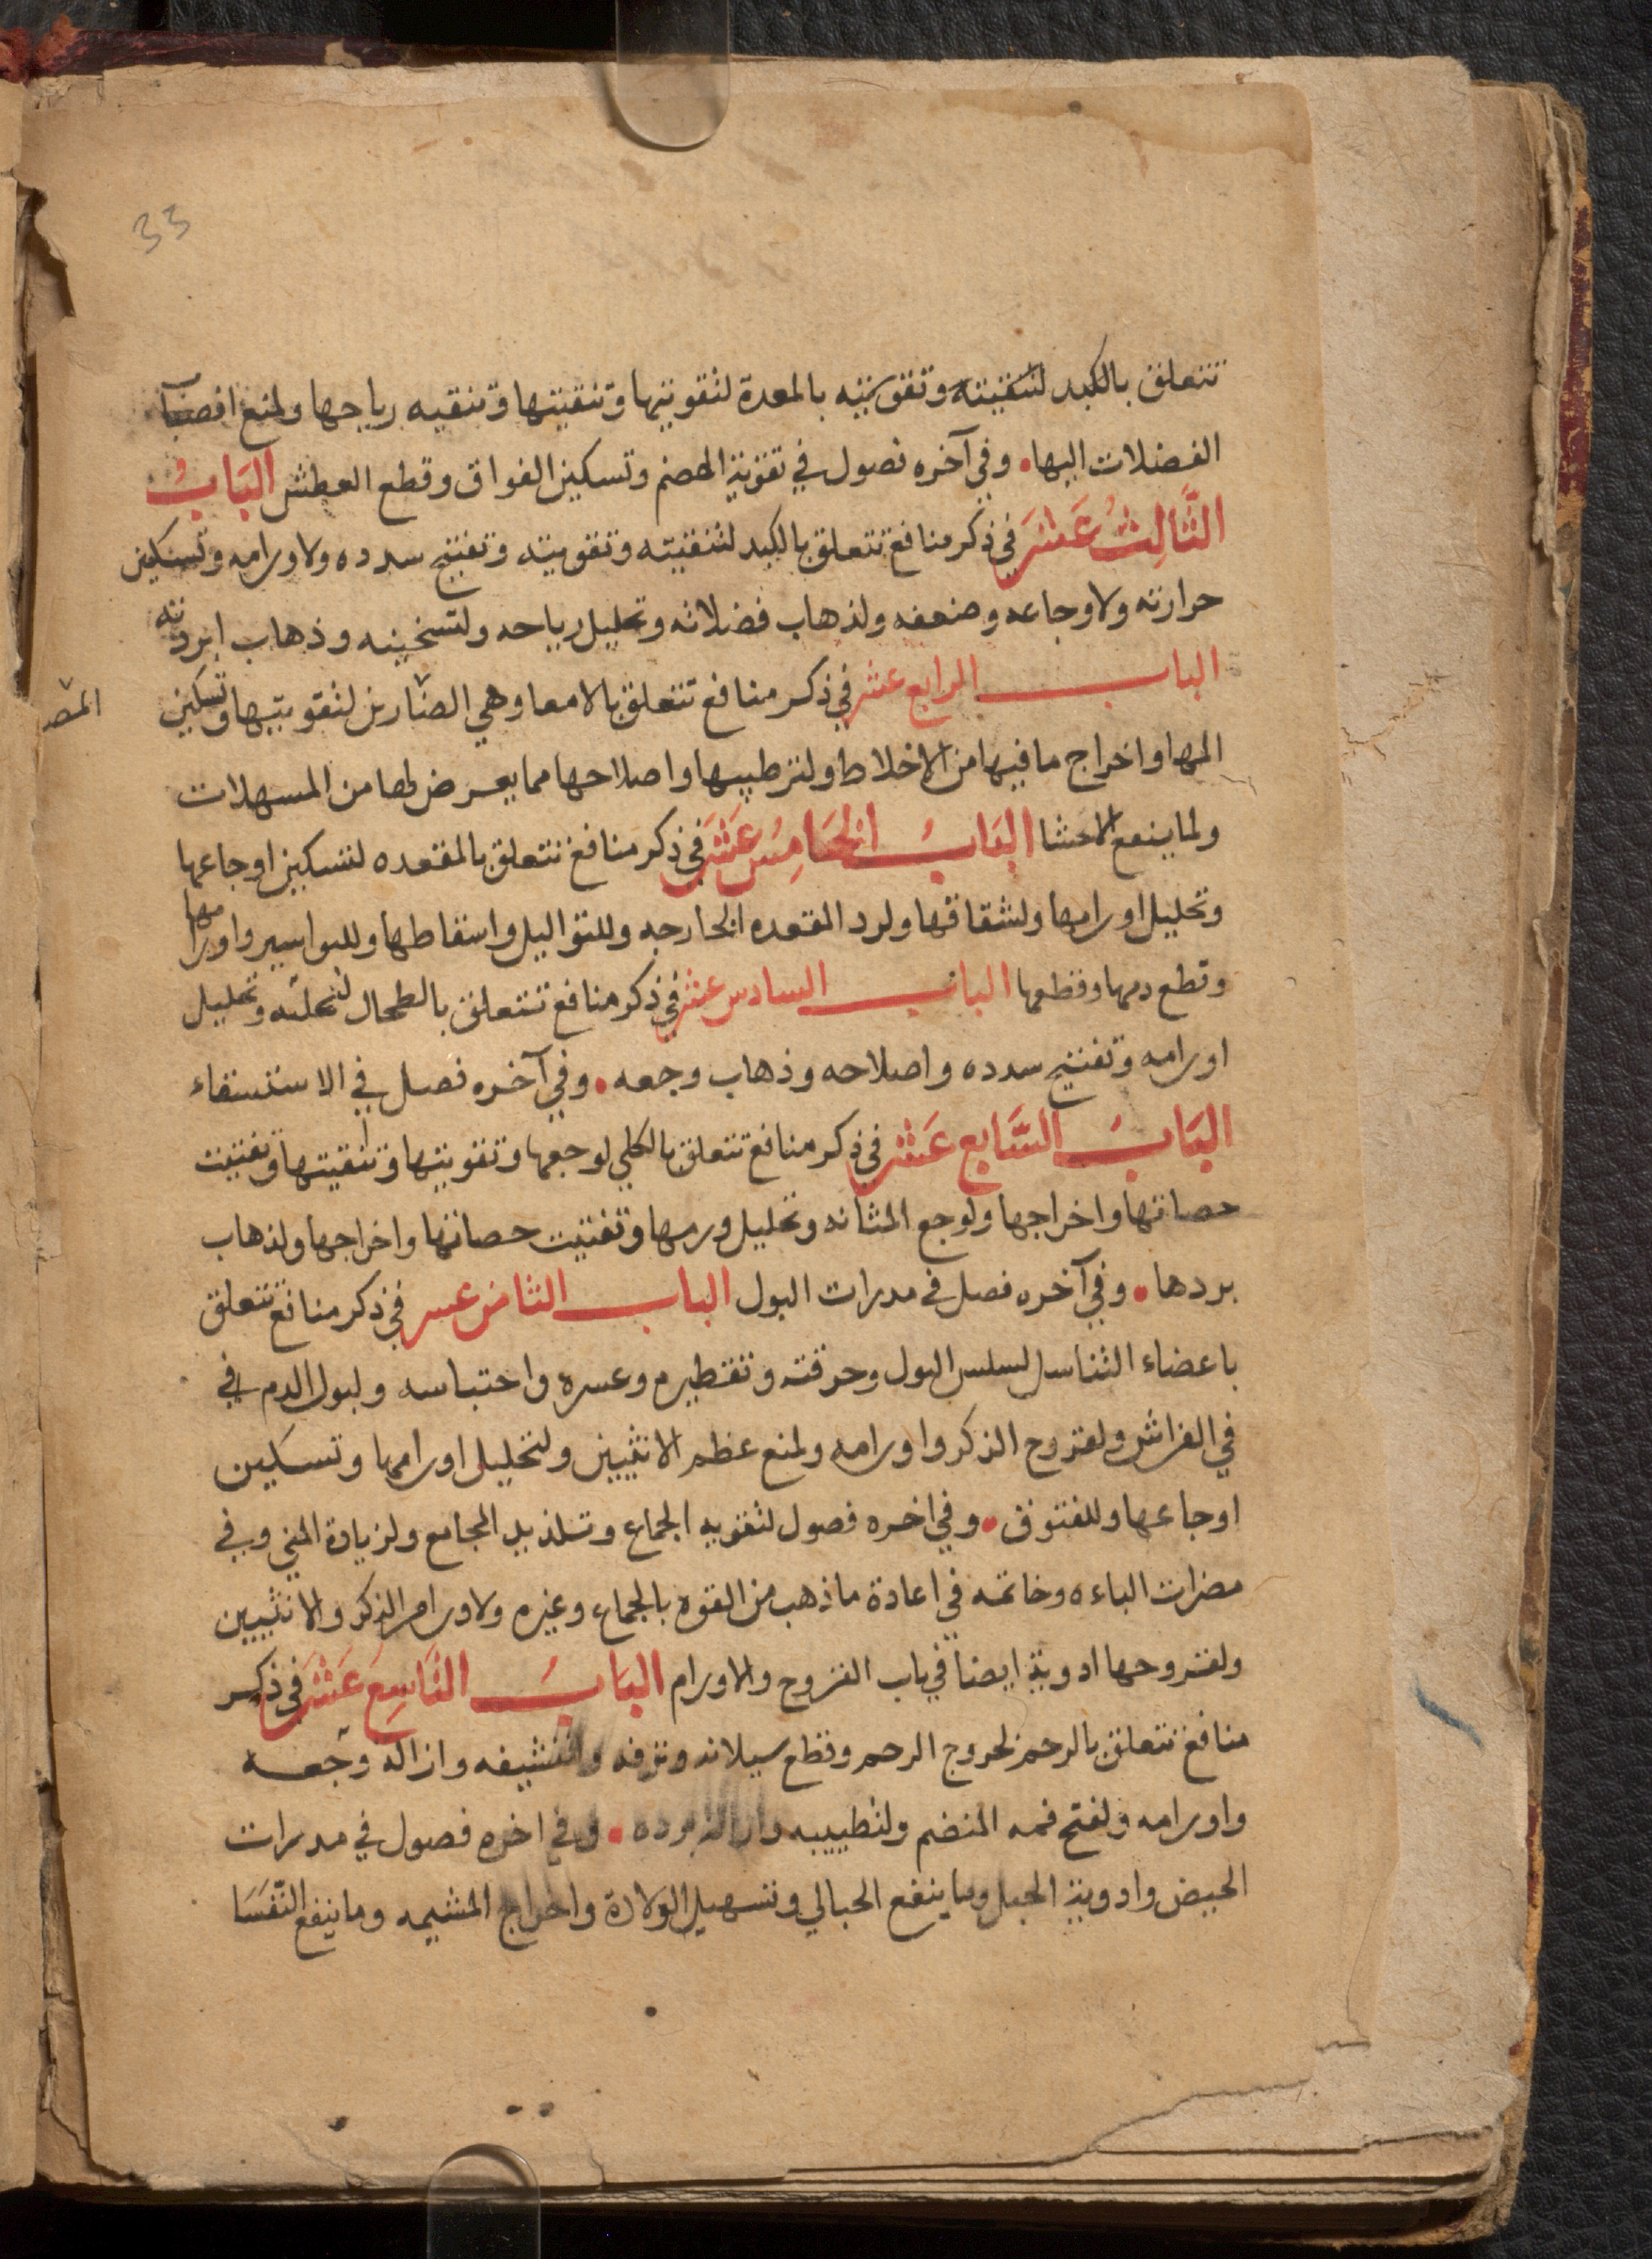 33
تتعلق بالكبد لتنقيته وتقويته بالمعدة لتقويتها وتنقيتها وتنقيه رياحها ولمنع افصبآ
الفضلات اليها • وفي آخره فصول في تقوية الهضم وتسكين الفواق وقطع العطش البَابُ
الثَّالِثُ عَشَرَ في ذكر منافع تتعلق بالكبد لتنقيته وتقويته وتفتيح سدده ولاورامه وتسكين
حرارته ولاوجاعه وضعفه ولذهاب فضلاته وتحليل رياحه ولتسخينه وذهاب ابردته
الباب الرابع عشر في ذكر منافع تتعلق بالامعا وهي المصارين لتقويتها وتسكين
المص
المها واخراج ما فيها من الاخلاط ولترطيبها واصلاحها مما يعرض لها من المسهلات
ولما ينفع الاحشا البَابُ الخَامِسُ عَشَرَ في ذكر منافع تتعلق بالمقعده لتسكين اوجاعها
وتحليل اورامها ولشقاقها ولرد المقعده الخارجه وللثواليل واسقاطها وللبواسير واورامها
وقطع دمها وقطعها الباب السادس عشر في ذكر منافع تتعلق بالطحال وتحليل
اورامه وتفتيح سدده واصلاحه وذهاب وجعه • وفي آخره فصل في الاستسقاء
البَابُ السَّابع عَشَر في ذكر منافع تتعلق بالكلي لوجعها وتقويتها وتنقيتها وتفتيت
حصاتها واخراجها ولوجع المثانه وتحليل ورمها وتفتيت حصاتها واخراجها ولذهاب
بردها • وفي آخره فصل في مدرات البول الباب الثامن عسر في ذكر منافع تتعلق
باعضاء التناسل لسلس البول وحرقته وتقطيره وعسره واحتباسه ولبول الدم في
في الفراش ولقروح الذكر واورامه ولمنع عظم الانثيين ولتحليل اورامها وتسكين
اوجاعها وللفتوق • وفي اخره فصول لتقويه الجماع وتلذيذ المجامع ولزيادة المني وفي
مضرات الباءه وخاتمه في اعادة ما ذهب من القوه بالجماع وغيره ولاورام الذكر والانثيين
ولقروحها ادوية ايضا في باب القروح والاورام البَابُ التَّاسِعُ عَشَرَ في ذكر
منافع تتعلق بالرحم لخروج الرحم وقطع سيلانه ونزفه وازالة وجعه
واورامه ولفتح فمه المنضم ولتطييبه • وفي اخره فصول في مدرات
الحيض وادوية الحبل وما ينفع الحبالي وتسهيل الولادة واخراج المشيمه وما ينفع النّفَسَا